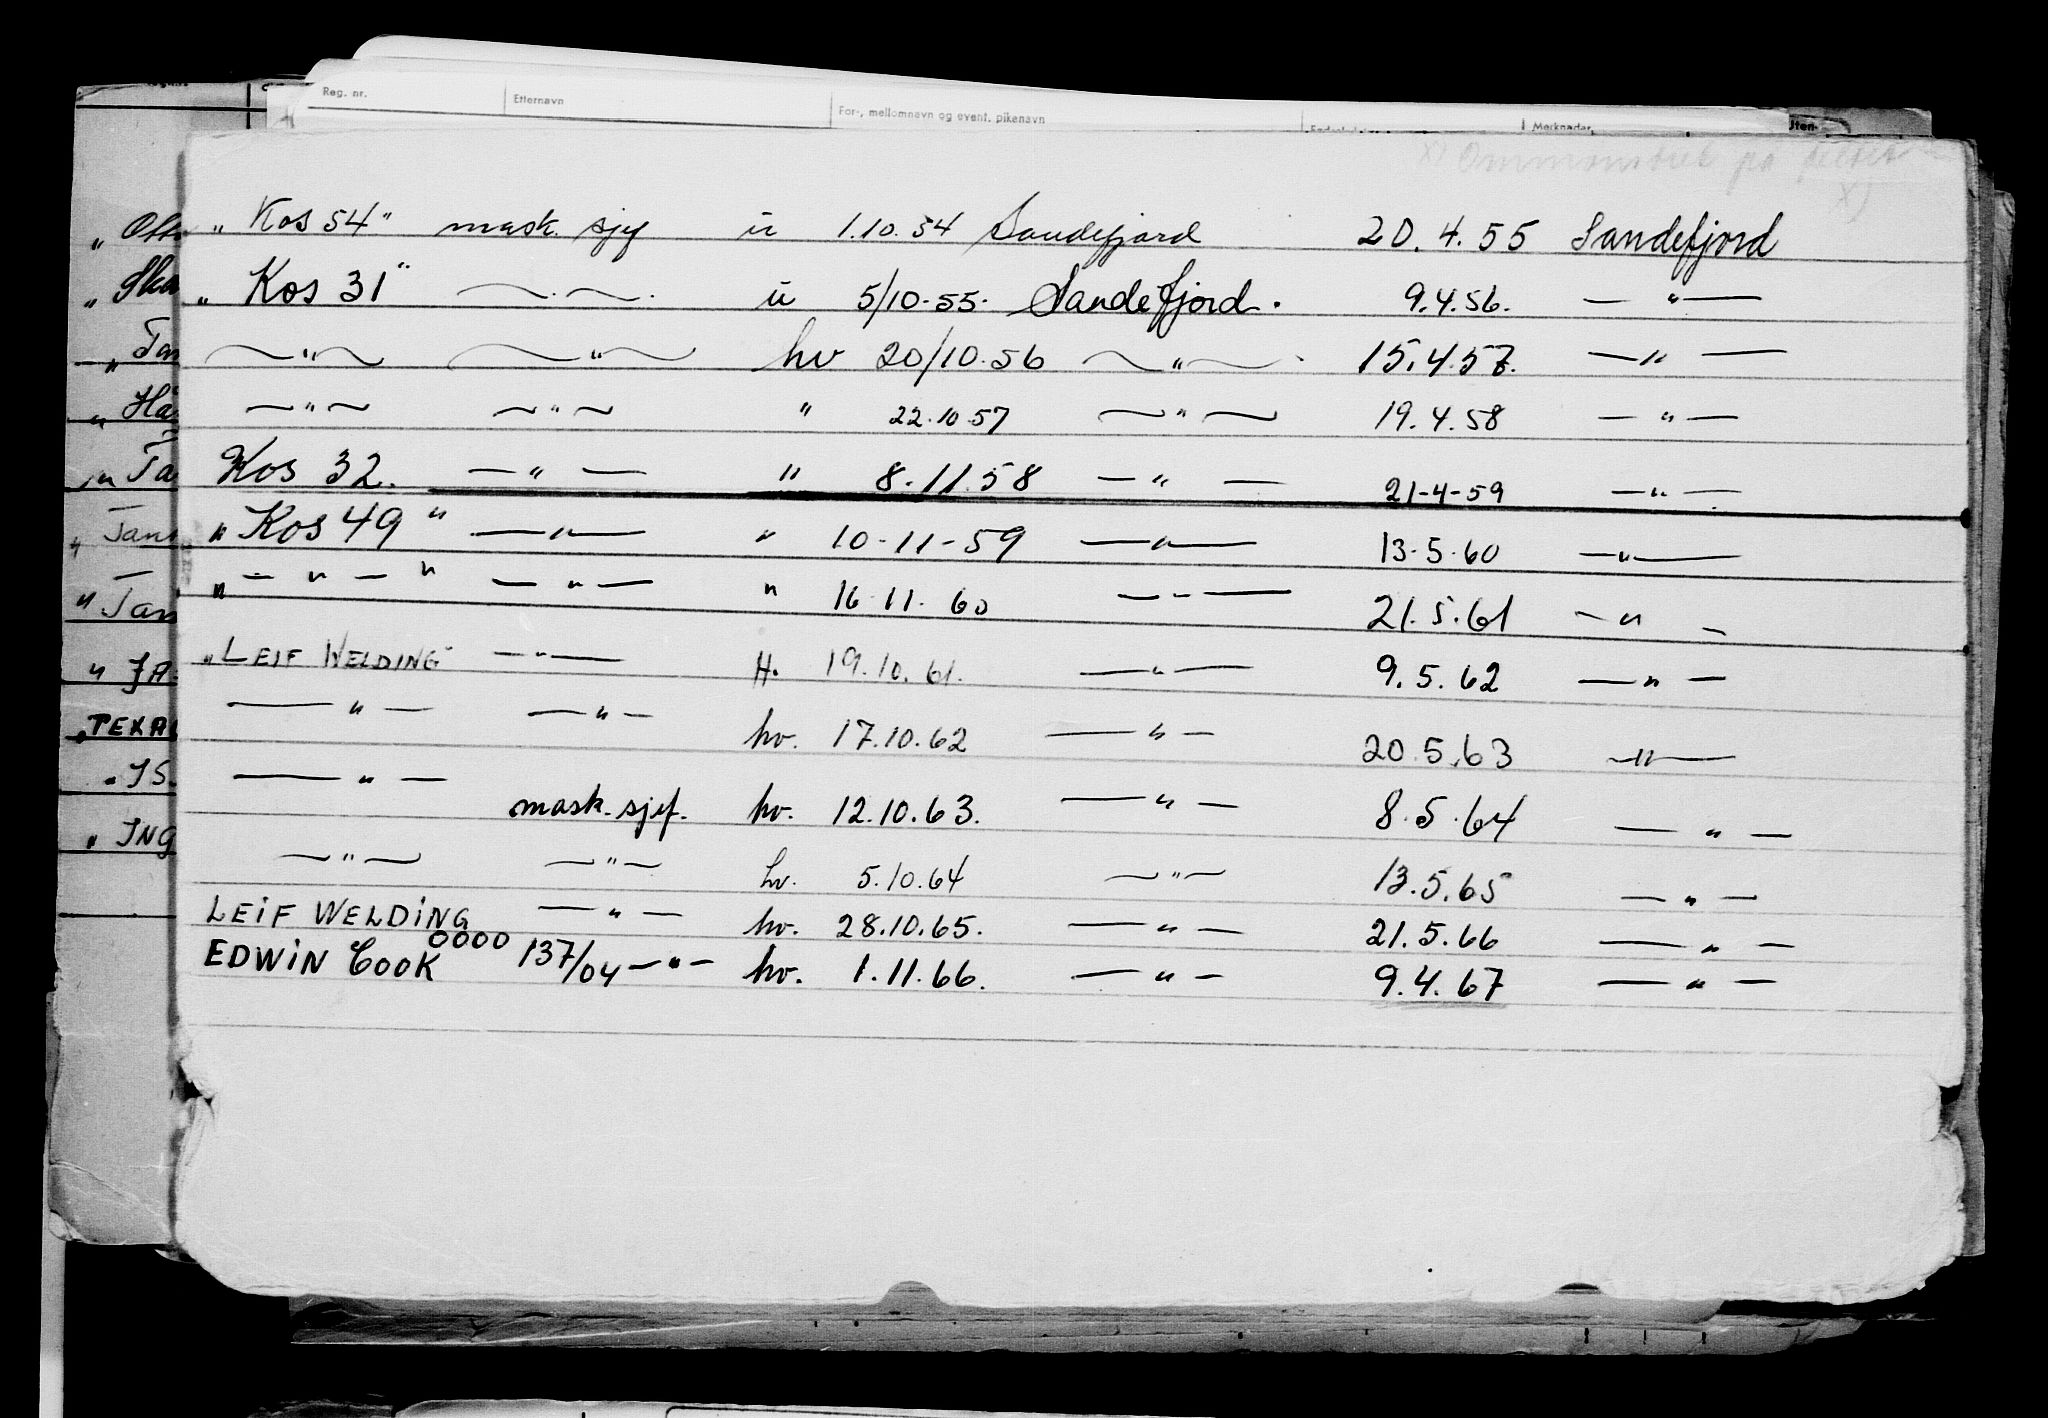 Reg. nr. Etternavn For-, mellomnavn og event. pikenavn Merknader
x) på feltet
x)
„ Kos 54" mask. sjef u 1.10.54 Sandefjord 20.4.55 Sandefjord
„ Kos 31" — . — . u 5/10-55. Sandefjord. 9.4.56. — " —
— " — — " — hv 20/10.56 — " — 15.4.57. — " —
— " — — " — " 22.10.57 — " — 19.4.58 — " —
Kos 32. — " — " 8.11.58 — " — 21-4-59 — " —
„ Kos 49 " — " — " 10-11-59 — " — 13-5-60 — " —
" — " — " — " — " 16-11.60 — " — 21.5.61 — " —
„LEIF WELDING" — " — H. 19.10.61. — " — 9.5.62 — " —
— " — — " — hv. 17.10.62 — " — 20.5.63 — " —
— " — mask.sjef. hv. 12.10.63. — " — 8.5.64 — " —
— " — — " — hv. 5.10.64 — " — 13.5.65 — " —
LEIF WELDING — " — hv. 28.10.65. — " — 21.5.66 — " —
EDWIN COOK 0000 137/04 — " — hv. 1.11.66. — " — 9.4.67 — " —